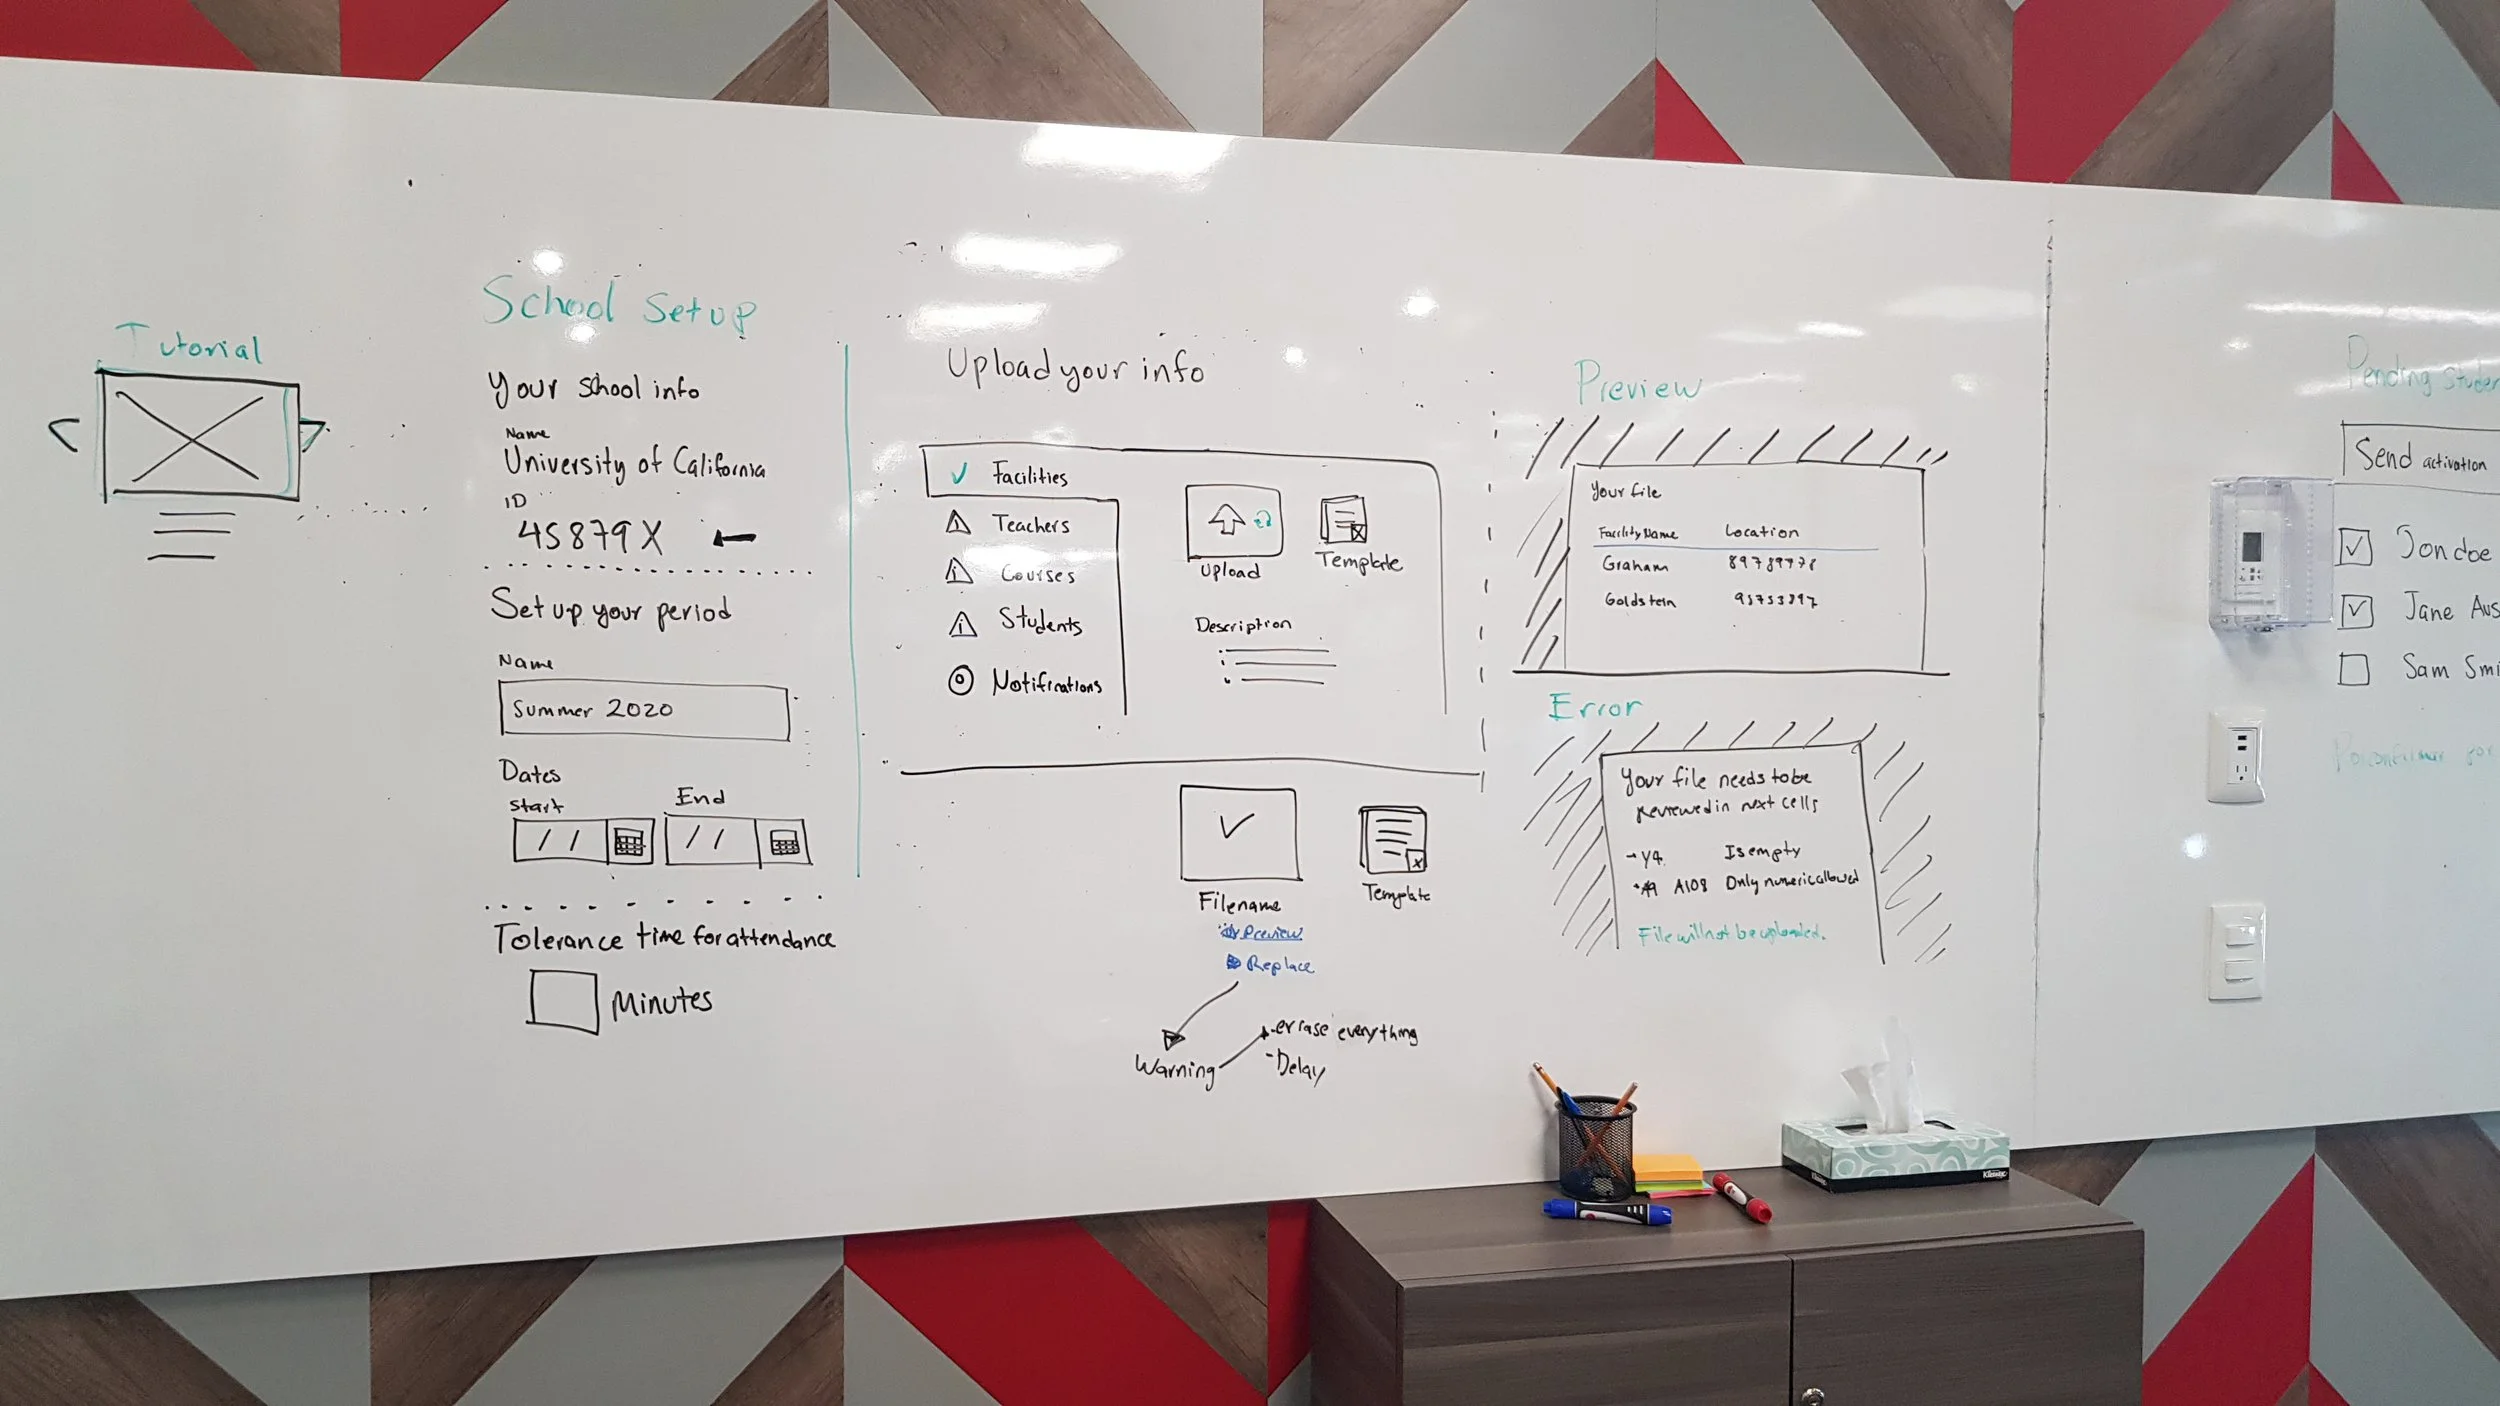 Tutorial
School Setup
Your school info
Name
University of California
ID
45879X
Set up your period
Name
Summer 2020
Dates
Start
End
/ /
/ /
Tolerance time for attendance
Minutes
Upload your info
Facilities
Teachers
Courses
Students
Notifications
Upload
Template
Description
Filename
Preview
Replace
Template
Warning
-errase everything
-Delay
Preview
Your file
Facility Name Location
Graham
Goldstein
Error
Your file needs to be
reviewed in next cells
Y4. Is empty
A108 Only numeric allowed
File will not be uploaded.
Pending
Send activation
Jon doe
Jane
Sam
Kleenex